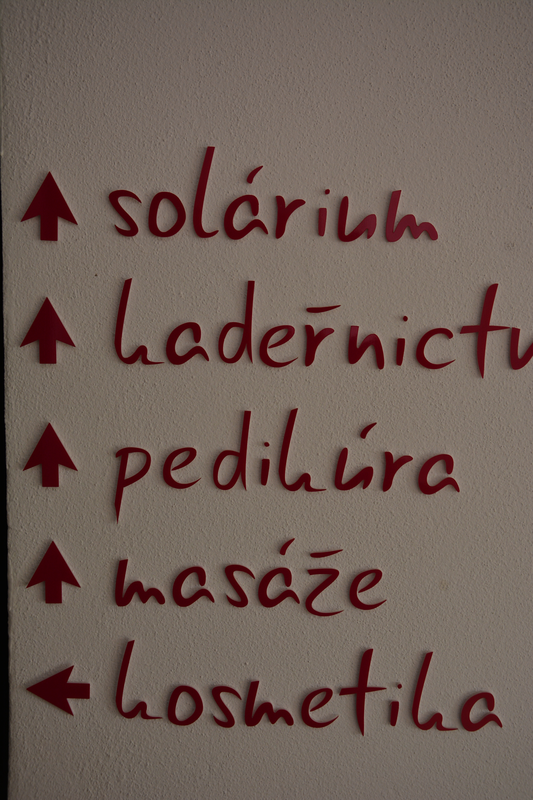 solárium
kadeřnictv
pedikúra
masáže
kosmetika